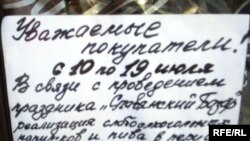 Уважаемые
покупатели!
с 10 по 19 июля
В связи с проведением
праздника
реализация слабоалкогольных
напитков и пива в
RFE/RL